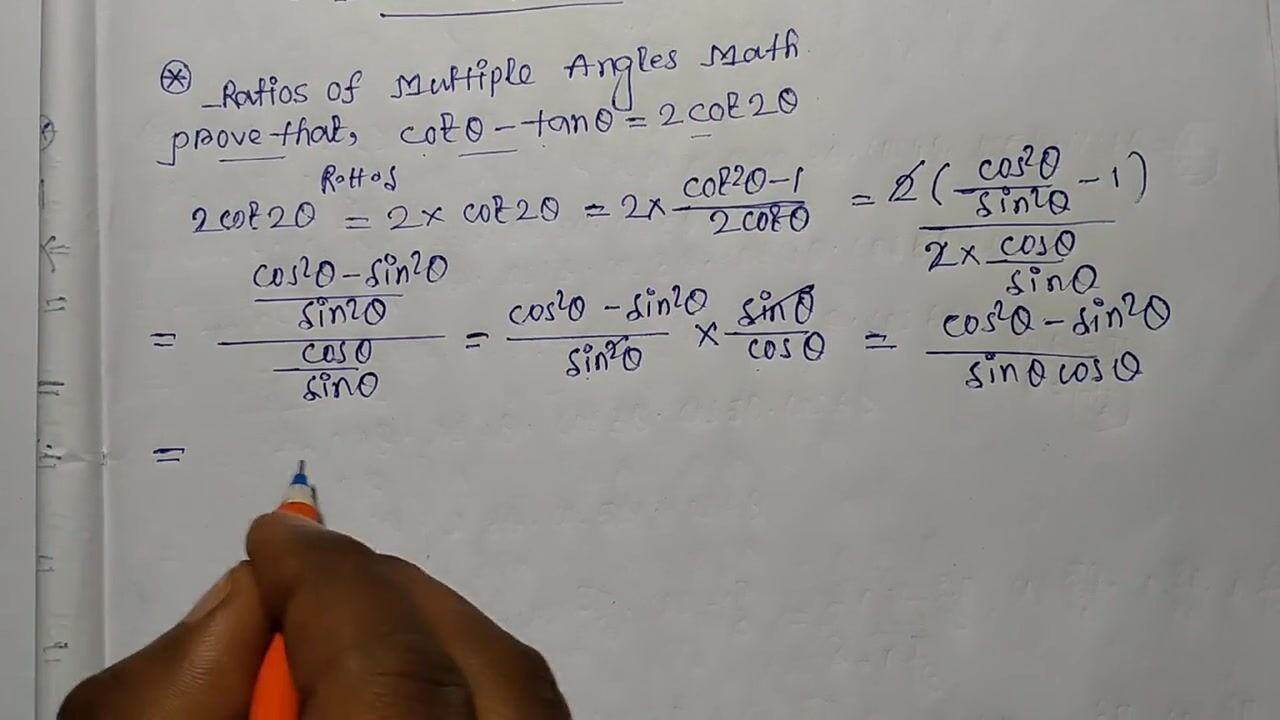 ⊛ Ratios of Multiple Angles Math
prove that, cotθ - tanθ = 2cot2θ
2cot2θ = 2 × cot2θ = 2 × (cot²θ - 1)/(2cotθ) = 2(cos²θ/sin²θ - 1)/(2 × cosθ/sinθ)
= ((cos²θ - sin²θ)/sin²θ)/(cosθ/sinθ) = (cos²θ - sin²θ)/sin²θ × sinθ/cosθ = (cos²θ - sin²θ)/(sinθ cosθ)
=